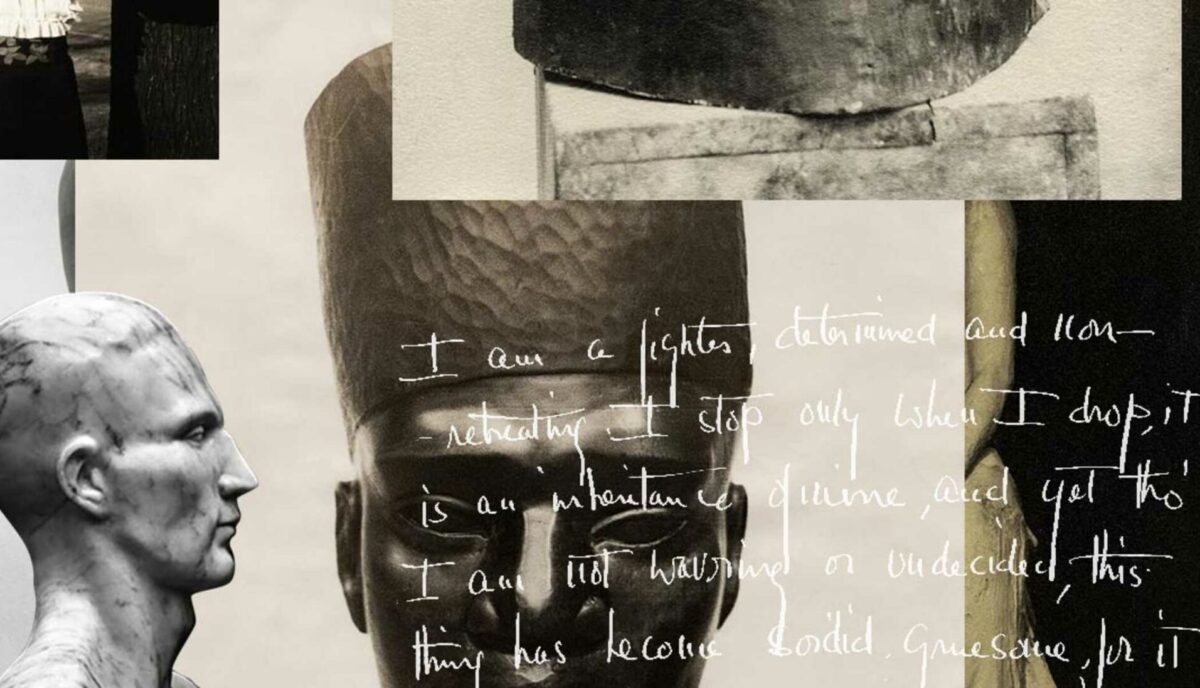 I am a fighter, determined and non-
-retreating I stop only when I drop, it
is an inheritance of mine, and yet tho'
I am not wavering or undecided, this
thing has become sordid, gruesome, for it